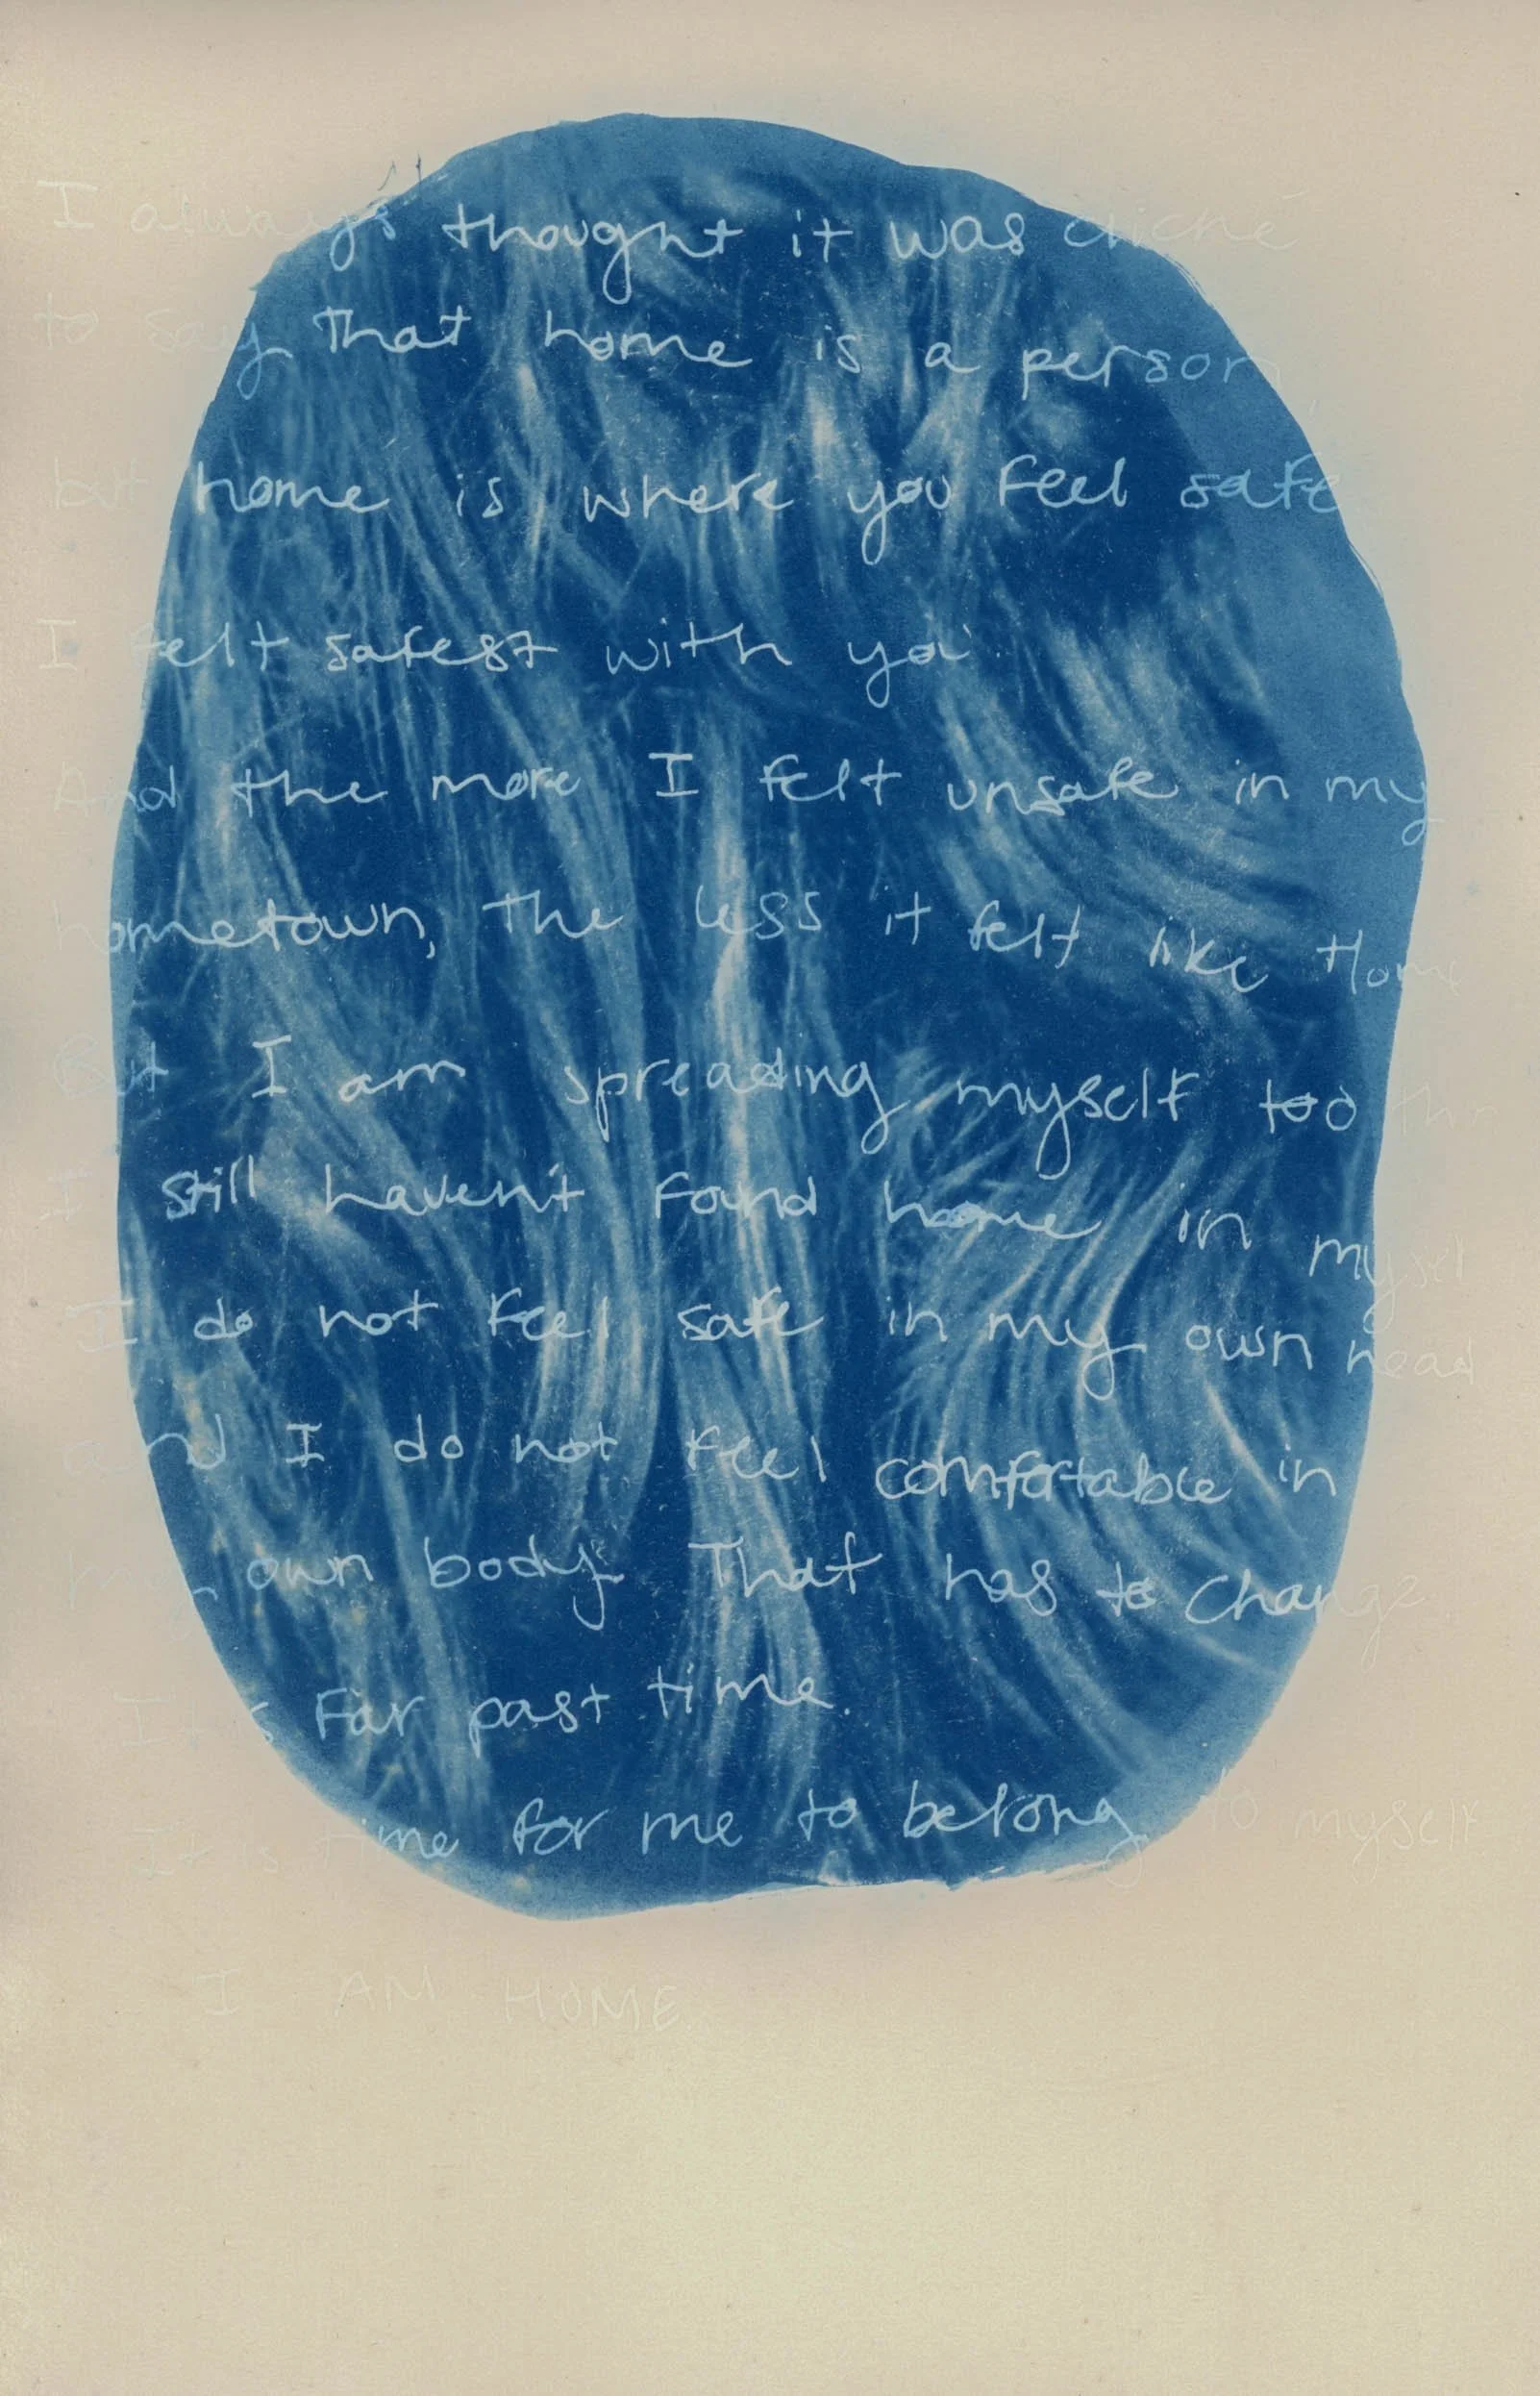 I always thought it was cliché
to say that home is a person
but home is where you feel safe
I felt safest with you.
And the more I felt unsafe in my
hometown, the less it felt like Home
But I am spreading myself too thin
I still haven't found home in myself
I do not feel safe in my own head
and I do not feel comfortable in
my own body. That has to change
It is far past time.
It is time for me to belong to myself.
I AM HOME.